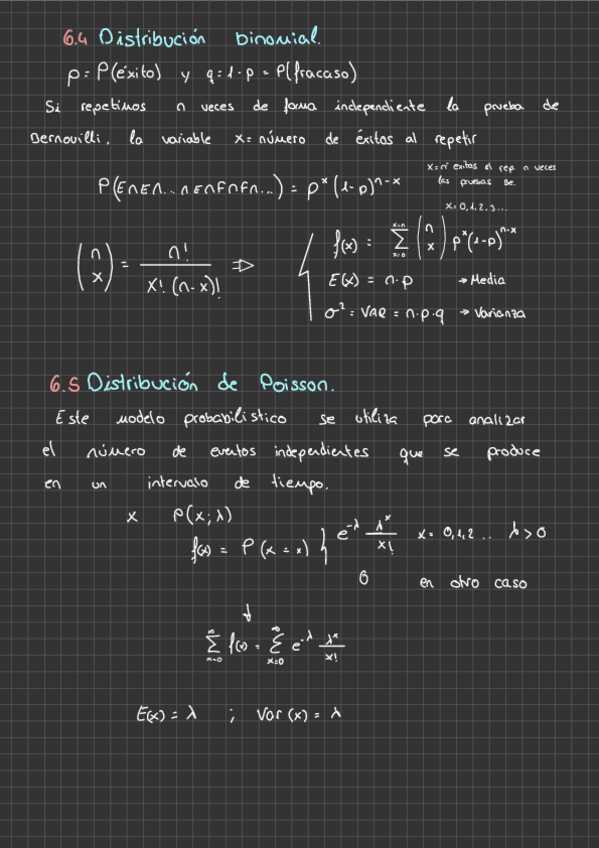 6.4 Distribución binomial.
p = P(éxito) y q = 1 - p = P(fracaso)
Si repetimos n veces de forma independiente la prueba de
Bernouilli, la variable x = número de éxitos al repetir
P(E∩E∩...∩E∩F∩F∩...) = p^x (1-p)^{n-x}
x = nº exitos al rep. n veces
las pruebas Be.
x = 0, 1, 2, 3...
(n x) = n! / x! (n-x)! ⇒
f(x) = Σ_{x=0}^{x=n} (n x) p^x (1-p)^{n-x}
E(x) = n·p → Media
σ² = VAR = n·p·q → Varianza
6.5 Distribución de Poisson.
Este modelo probabilístico se utiliza para analizar
el número de eventos independientes que se produce
en un intervalo de tiempo.
x P(x; λ)
f(x) = P(x = x) } e^{-λ} λ^x / x! x = 0, 1, 2 .. λ > 0
0 en otro caso
↓
Σ_{x=0}^{∞} f(x) = Σ_{x=0}^{∞} e^{-λ} λ^x / x!
E(x) = λ ; Var (x) = λ